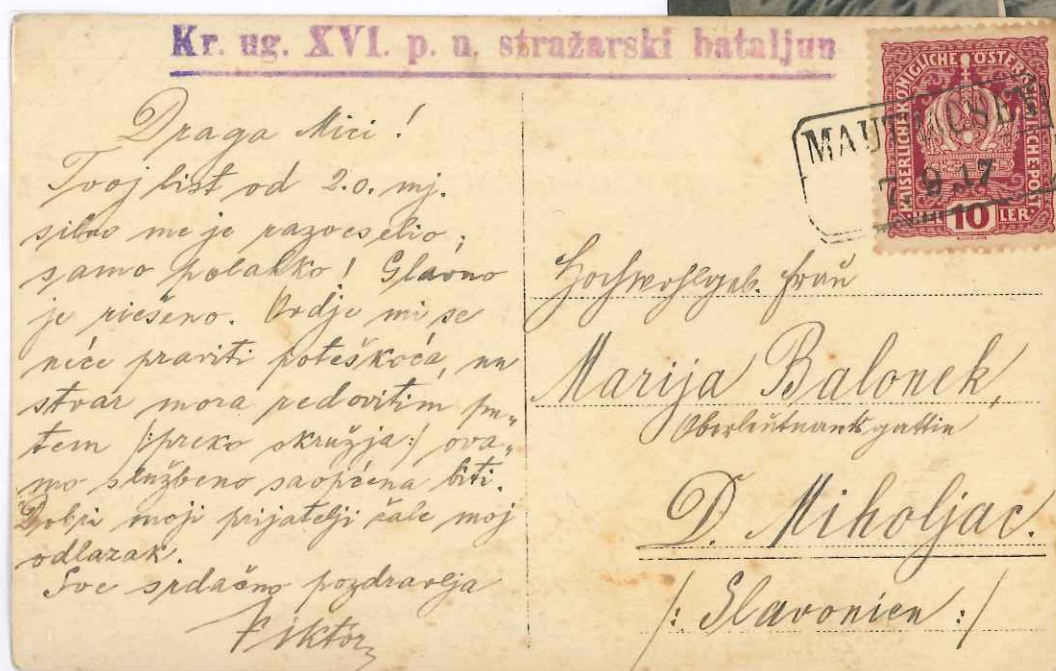 Kr. ug. XVI. p. u. stražarski bataljun
Draga Mici !
Tvoj list od 2. o. mj.
silno me je razveselio ;
samo polahko ! Glavno
je riešeno. Ovdje mi se
neće praviti poteškoća, no
stvar mora redovitim pu„
tem /:preko okružja:/ ova„
mo službeno saopćena biti.
Dobri moji prijatelji žale moj
odlazak.
Sve srdačno pozdravlja
Viktor
KAISERLICHE KÖNIGLICHE ÖSTERREICHISCHE POST
10
LER
7. 9. 17
Hochwohlgeb. Frau
Marija Balonek,
Oberleutnantsgattin
D. Miholjac.
/: Slavonien :/